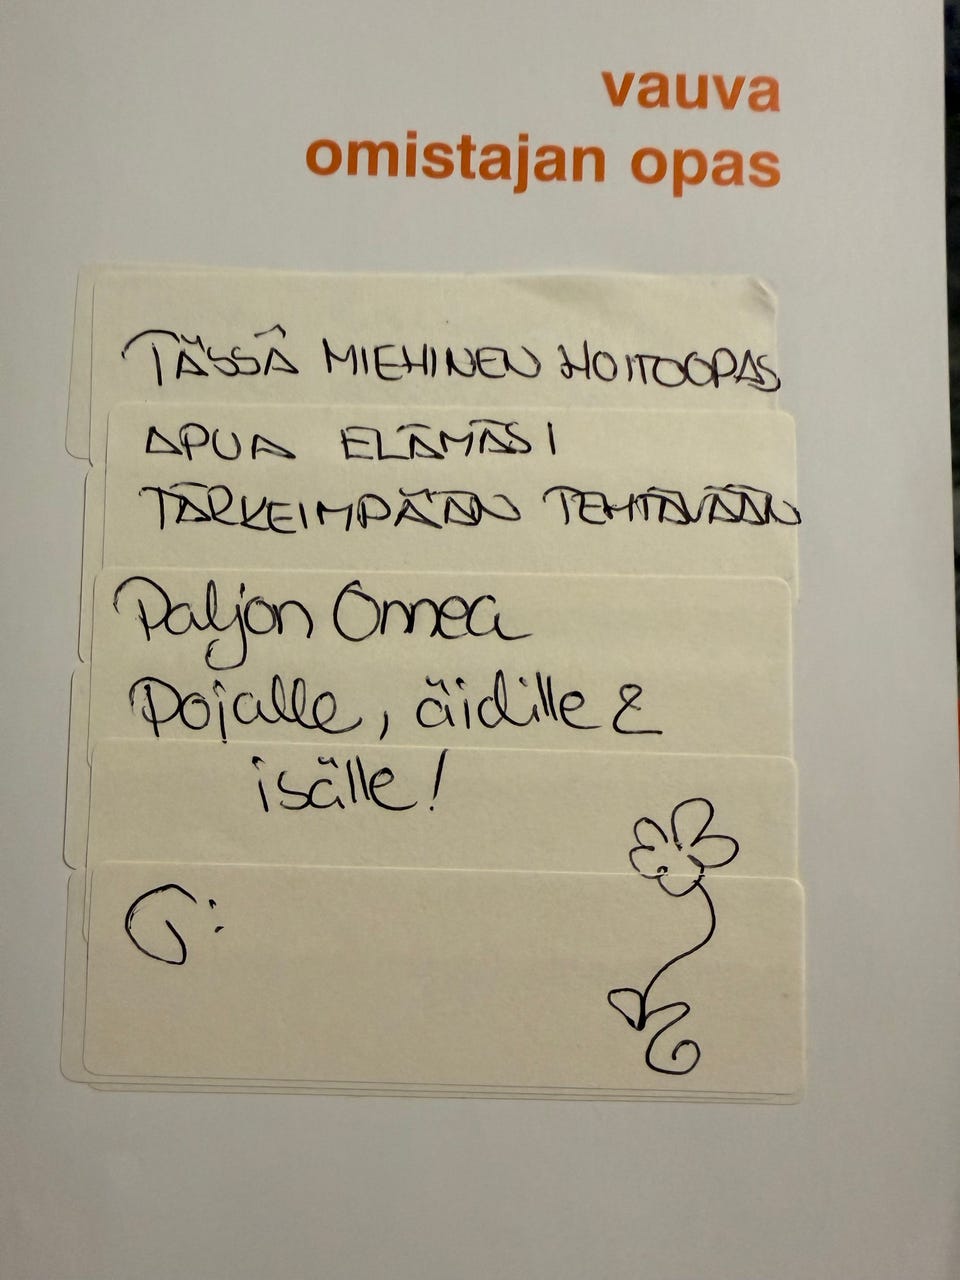 vauva
omistajan opas
TÄSSÄ MIEHINEN HOITOOPAS
APUA ELÄMÄSI
TÄRKEIMPÄÄN TEHTÄVÄÄN
Paljon Onnea
Pojalle, äidille &
isälle!
G: